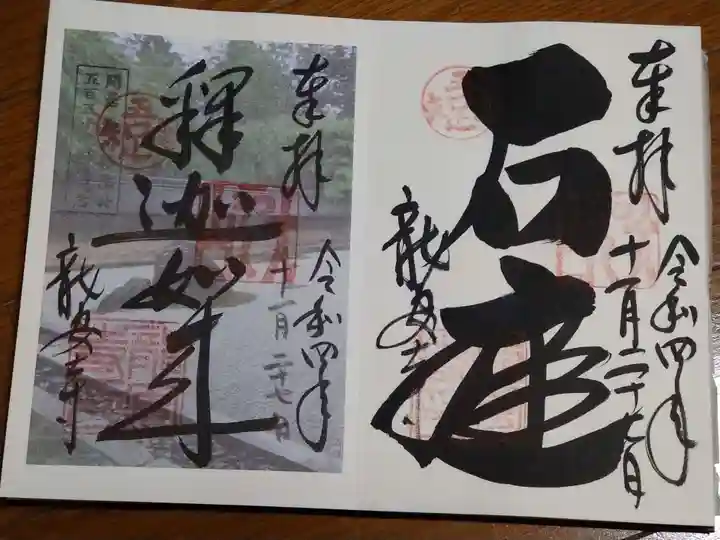 奉拝
令和四年
十一月二十七日
石庭
龍安寺
奉拝
令和四年
十一月二十七日
釋迦如来
龍安寺